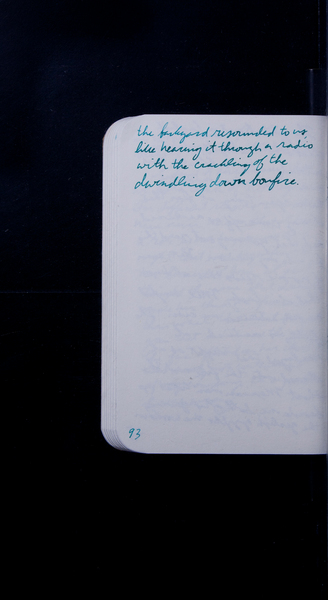 the backyard resounded to us
like hearing it through a radio
with the crackling of the
dwindling down bonfire.
93